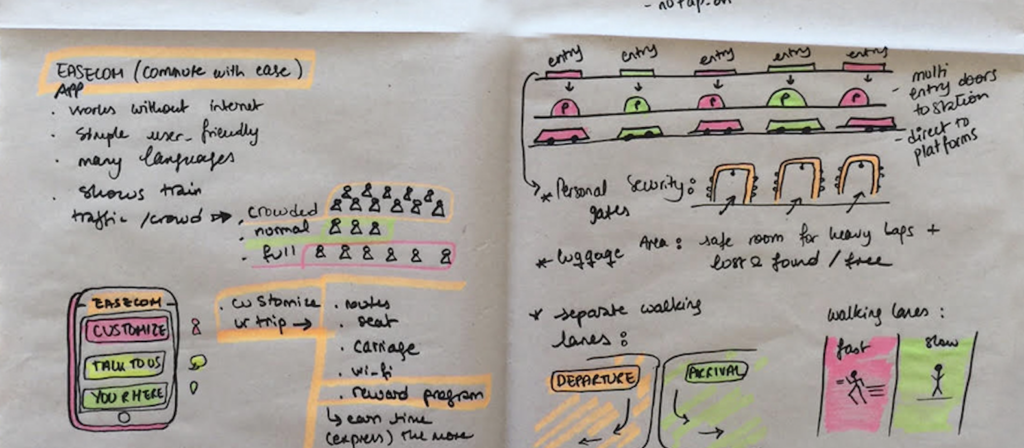 - no tap-on
EASECOM (commute with ease)
APP
. works without internet
. simple user-friendly
. many languages
. shows train
traffic / crowd
. crowded
. normal
. full
EASECOM
CUSTOMIZE
TALK TO US
YOU R HERE
customize
ur trip →
. routes
. seat
. carriage
. wi-fi
. reward program
↳ earn time
(express) the more
entry entry entry entry entry
P P P P P
- multi
entry doors
to station
- direct to
platforms
* Personal Security:
gates
* Luggage Area: safe room for heavy +
lost & found / free
* separate walking
lanes:
DEPARTURE
ARRIVAL
walking lanes:
fast
slow